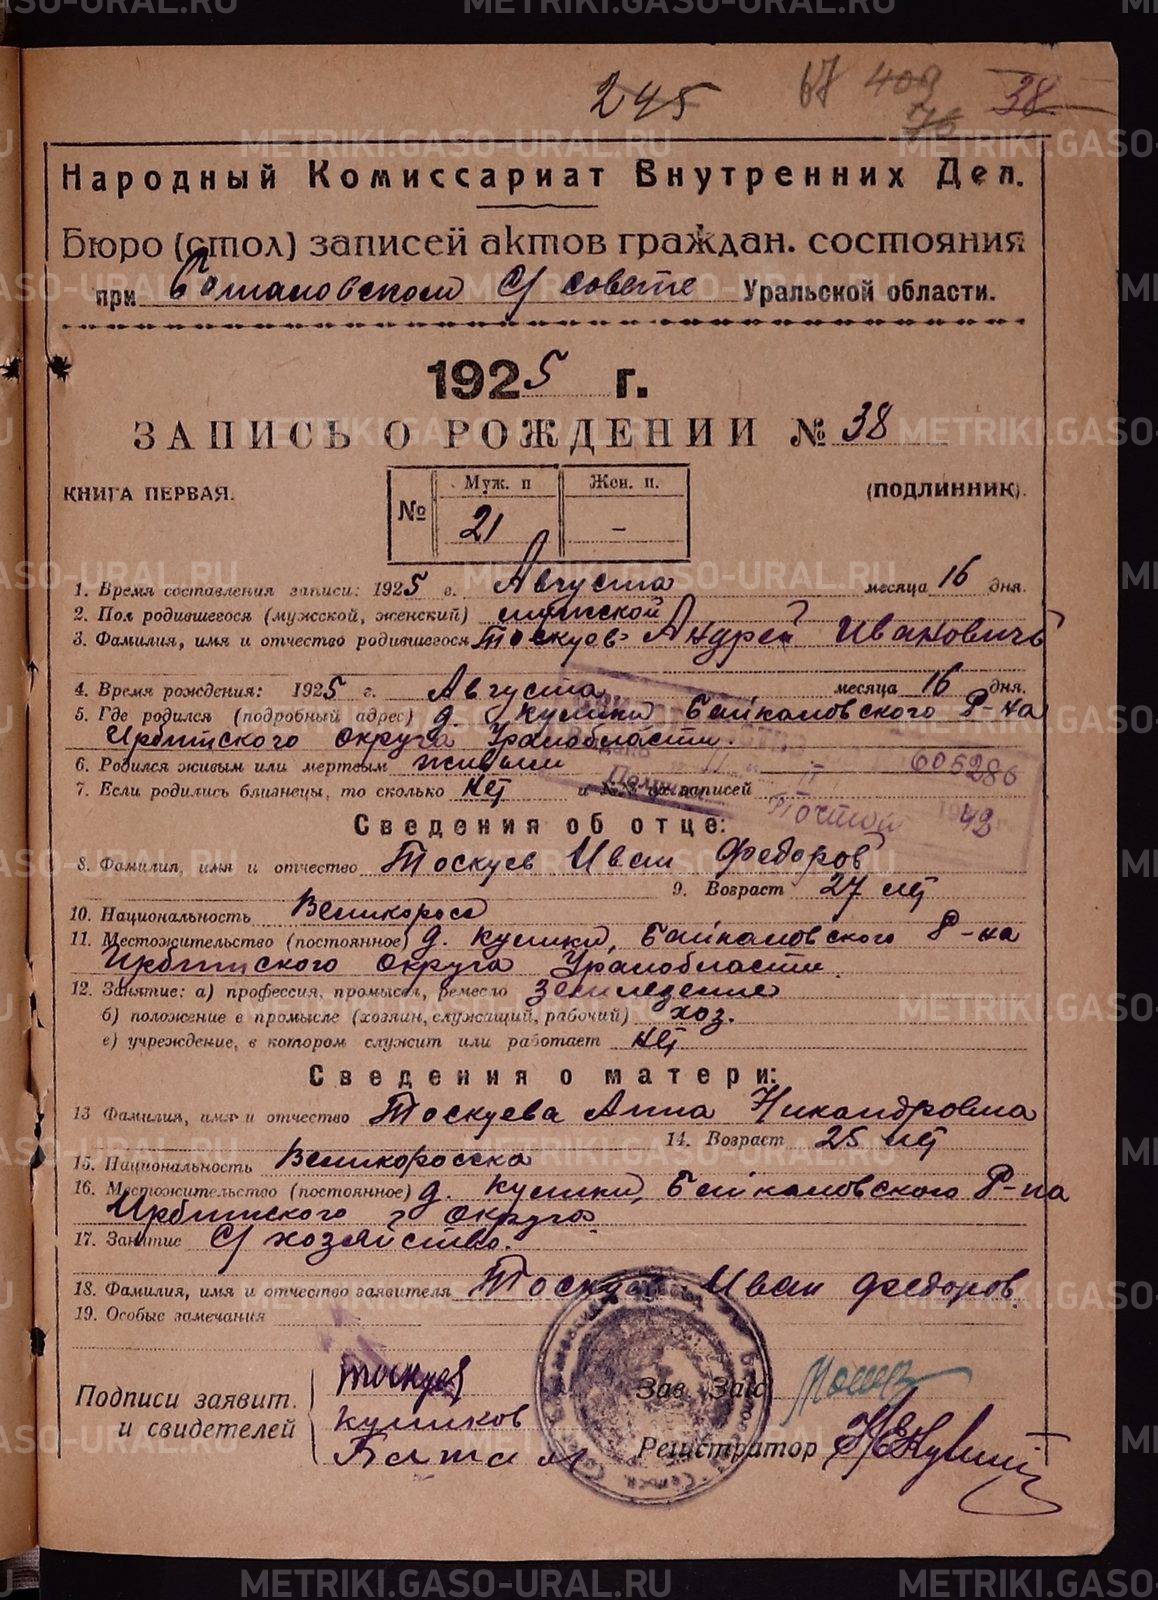 245 67 409 76 38
Народный Комиссариат Внутренних Дел.
Бюро (стол) записей актов граждан. состояния
при С/совете Уральской области.
1925 г.
ЗАПИСЬ О РОЖДЕНИИ № 38
КНИГА ПЕРВАЯ. (ПОДЛИННИК).
№ Муж. п Жен. п.
21 –
1. Время составления записи: 1925 г. Августа месяца 16 дня.
2. Пол родившегося (мужской, женский) мужской
3. Фамилия, имя и отчество родившегося Тоскуев Андрей Ивановичъ
4. Время рождения: 1925 г. Августа месяца 16 дня.
5. Где родился (подробный адрес) д. Кулики Байкаловского Р-на
Ирбитского округа Уралобласти.
6. Родился живым или мертвым живым
605286
7. Если родились близнецы, то сколько нет и №№ их записей
Почтой 42
Сведения об отце:
8. Фамилия, имя и отчество Тоскуев Иван Федоров
9. Возраст 27 лет
10. Национальность Великоросс
11. Местожительство (постоянное) д. Кулики, Байкаловского Р-на
Ирбитского округа Уралобласти.
12. Занятие: а) профессия, промысел, ремесло земледелие
б) положение в промысле (хозяин, служащий, рабочий) хоз.
в) учреждение, в котором служит или работает нет
Сведения о матери:
13 Фамилия, имя и отчество Тоскуева Анна Никандровна
14. Возраст 25 лет
15. Национальность Великоросска
16. Местожительство (постоянное) д. Кулики, Байкаловского Р-на
Ирбитского округа
17. Занятие С/хозяйство.
18. Фамилия, имя и отчество заявителя Тоскуев Иван Федоров
19. Особые замечания
Подписи заявит. и свидетелей
Тоскуев
Куликов
Зав. Загс
Регистратор
METRIKI.GASO-URAL.RU